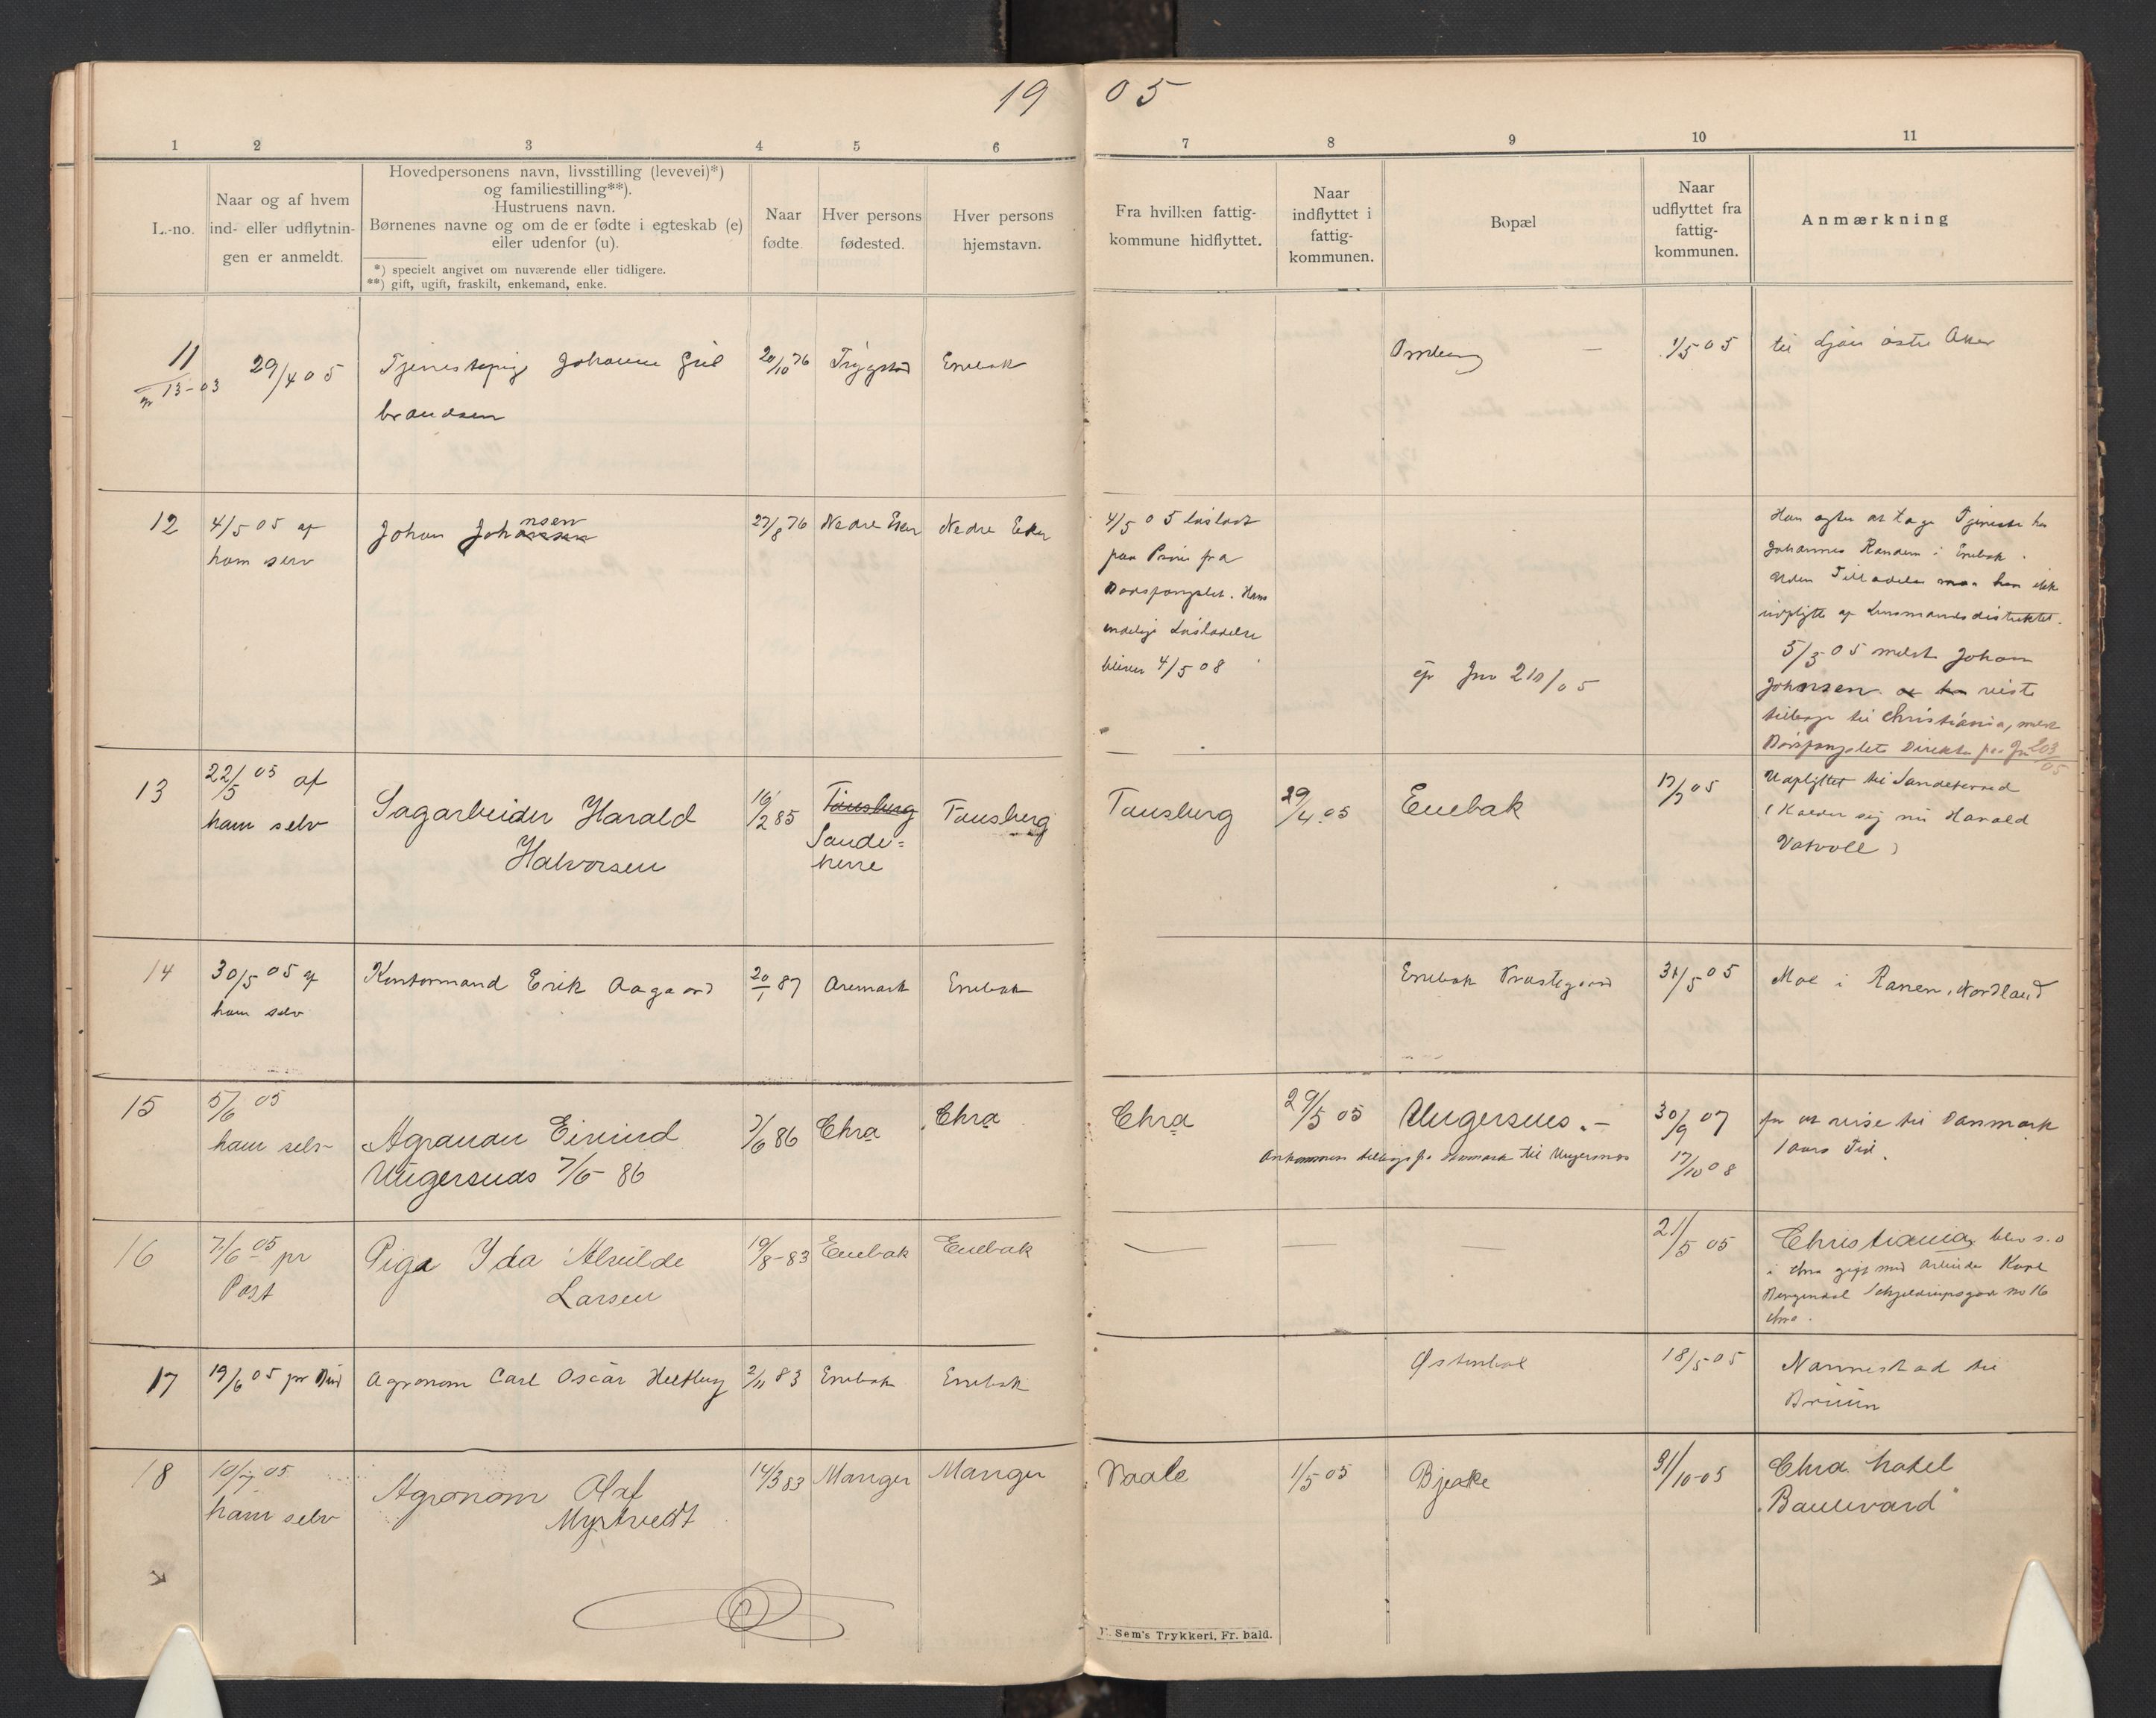 19 05
1 2 3 4 5 6 7 8 9 10 11
L.-no.
Naar og af hvem
ind- eller udflytnin-
gen er anmeldt.
Hovedpersonens navn, livsstilling (levevei)*)
og familiestilling**).
Hustruens navn.
Børnenes navne og om de er fødte i egteskab (e)
eller udenfor (u).
*) specielt angivet om nuværende eller tidligere.
**) gift, ugift, fraskilt, enkemand, enke.
Naar
fødte.
Hver persons
fødested.
Hver persons
hjemstavn.
Fra hvilken fattig-
kommune hidflyttet.
Naar
indflyttet i
fattig-
kommunen.
Bopæl
Naar
udflyttet fra
fattig-
kommunen.
Anmærkning
11
13-03
29/4 05
Tjenestepige Johanne Gul
brandsen
20/10 76
Trygstad
Enebak
1/5 05
til Ljan østre Aker
12
4/5 05 af
ham selv
Johan Johansen
nsen
27/8 76
Nedre Eker
Nedre Eker
4/5 05 løsladt
paa Prøve fra
Bodsfængslet. Hans
endelige Løsladelse
bliver 4/5 08
Jnr 210/05
Han agter at tage Tjeneste hos
Johannes Randem i Enebak.
Uden Tilladelse maa han ikke
udflytte af Lensmandsdistriktet.
5/5 05 meldt Johan
Johnsen at han reiste
tilbage til Christiania, meldt
Bodsfængslets Direktør pr Jnr 203/05
13
22/5 05 af
ham selv
Sagarbeider Harald
Halvorsen
16/2 85
Tønsberg
Sande-
herre
Tønsberg
Tønsberg
29/4.05
Enebak
17/7 05
Udflyttet til Sandeherred
(Kalder sig nu Harald
Vatvoll)
14
30/5 05 af
ham selv
Kontormand Erik Aagaard
20/1 87
Aremark
Enebak
Enebak Prestegaard
31/5 05
Moe i Ranen, Nordland
15
5/6 05
ham selv
Agronom Eivind
Ungersnæs 7/6-86
7/6 86
Chra
Chra
Chra
29/5 05
Ungersnes.-
Ankommen tilbage fra Danmark til Ungersnæs
30/9 07
17/10 08
for at reise til Danmark
1 aars Tid.
16
7/6 05 pr
Post
Pige Ida Alvilde
Larsen
19/8-83
Enebak
Enebak
21/5 05
Christiania, blev s.a
i Chra gift med Arbeider Karl
Bergendal Schjeldrupsgade no 16
Chra.
17
19/6 05 pr Bud
Agronom Carl Oscar Heftug
2/11 83
Enebak
Enebak
Østenbøl
18/5 05
Nannestad til
Bruun
18
10/7 05
ham selv
Agronom Olaf
Myrtvedt
14/3 83
Manger
Manger
Vaale
1/5 05
Bjerke
31/10-05
Chra hotel
"Boulevard"
E. Sem's Trykkeri, Fr. hald.